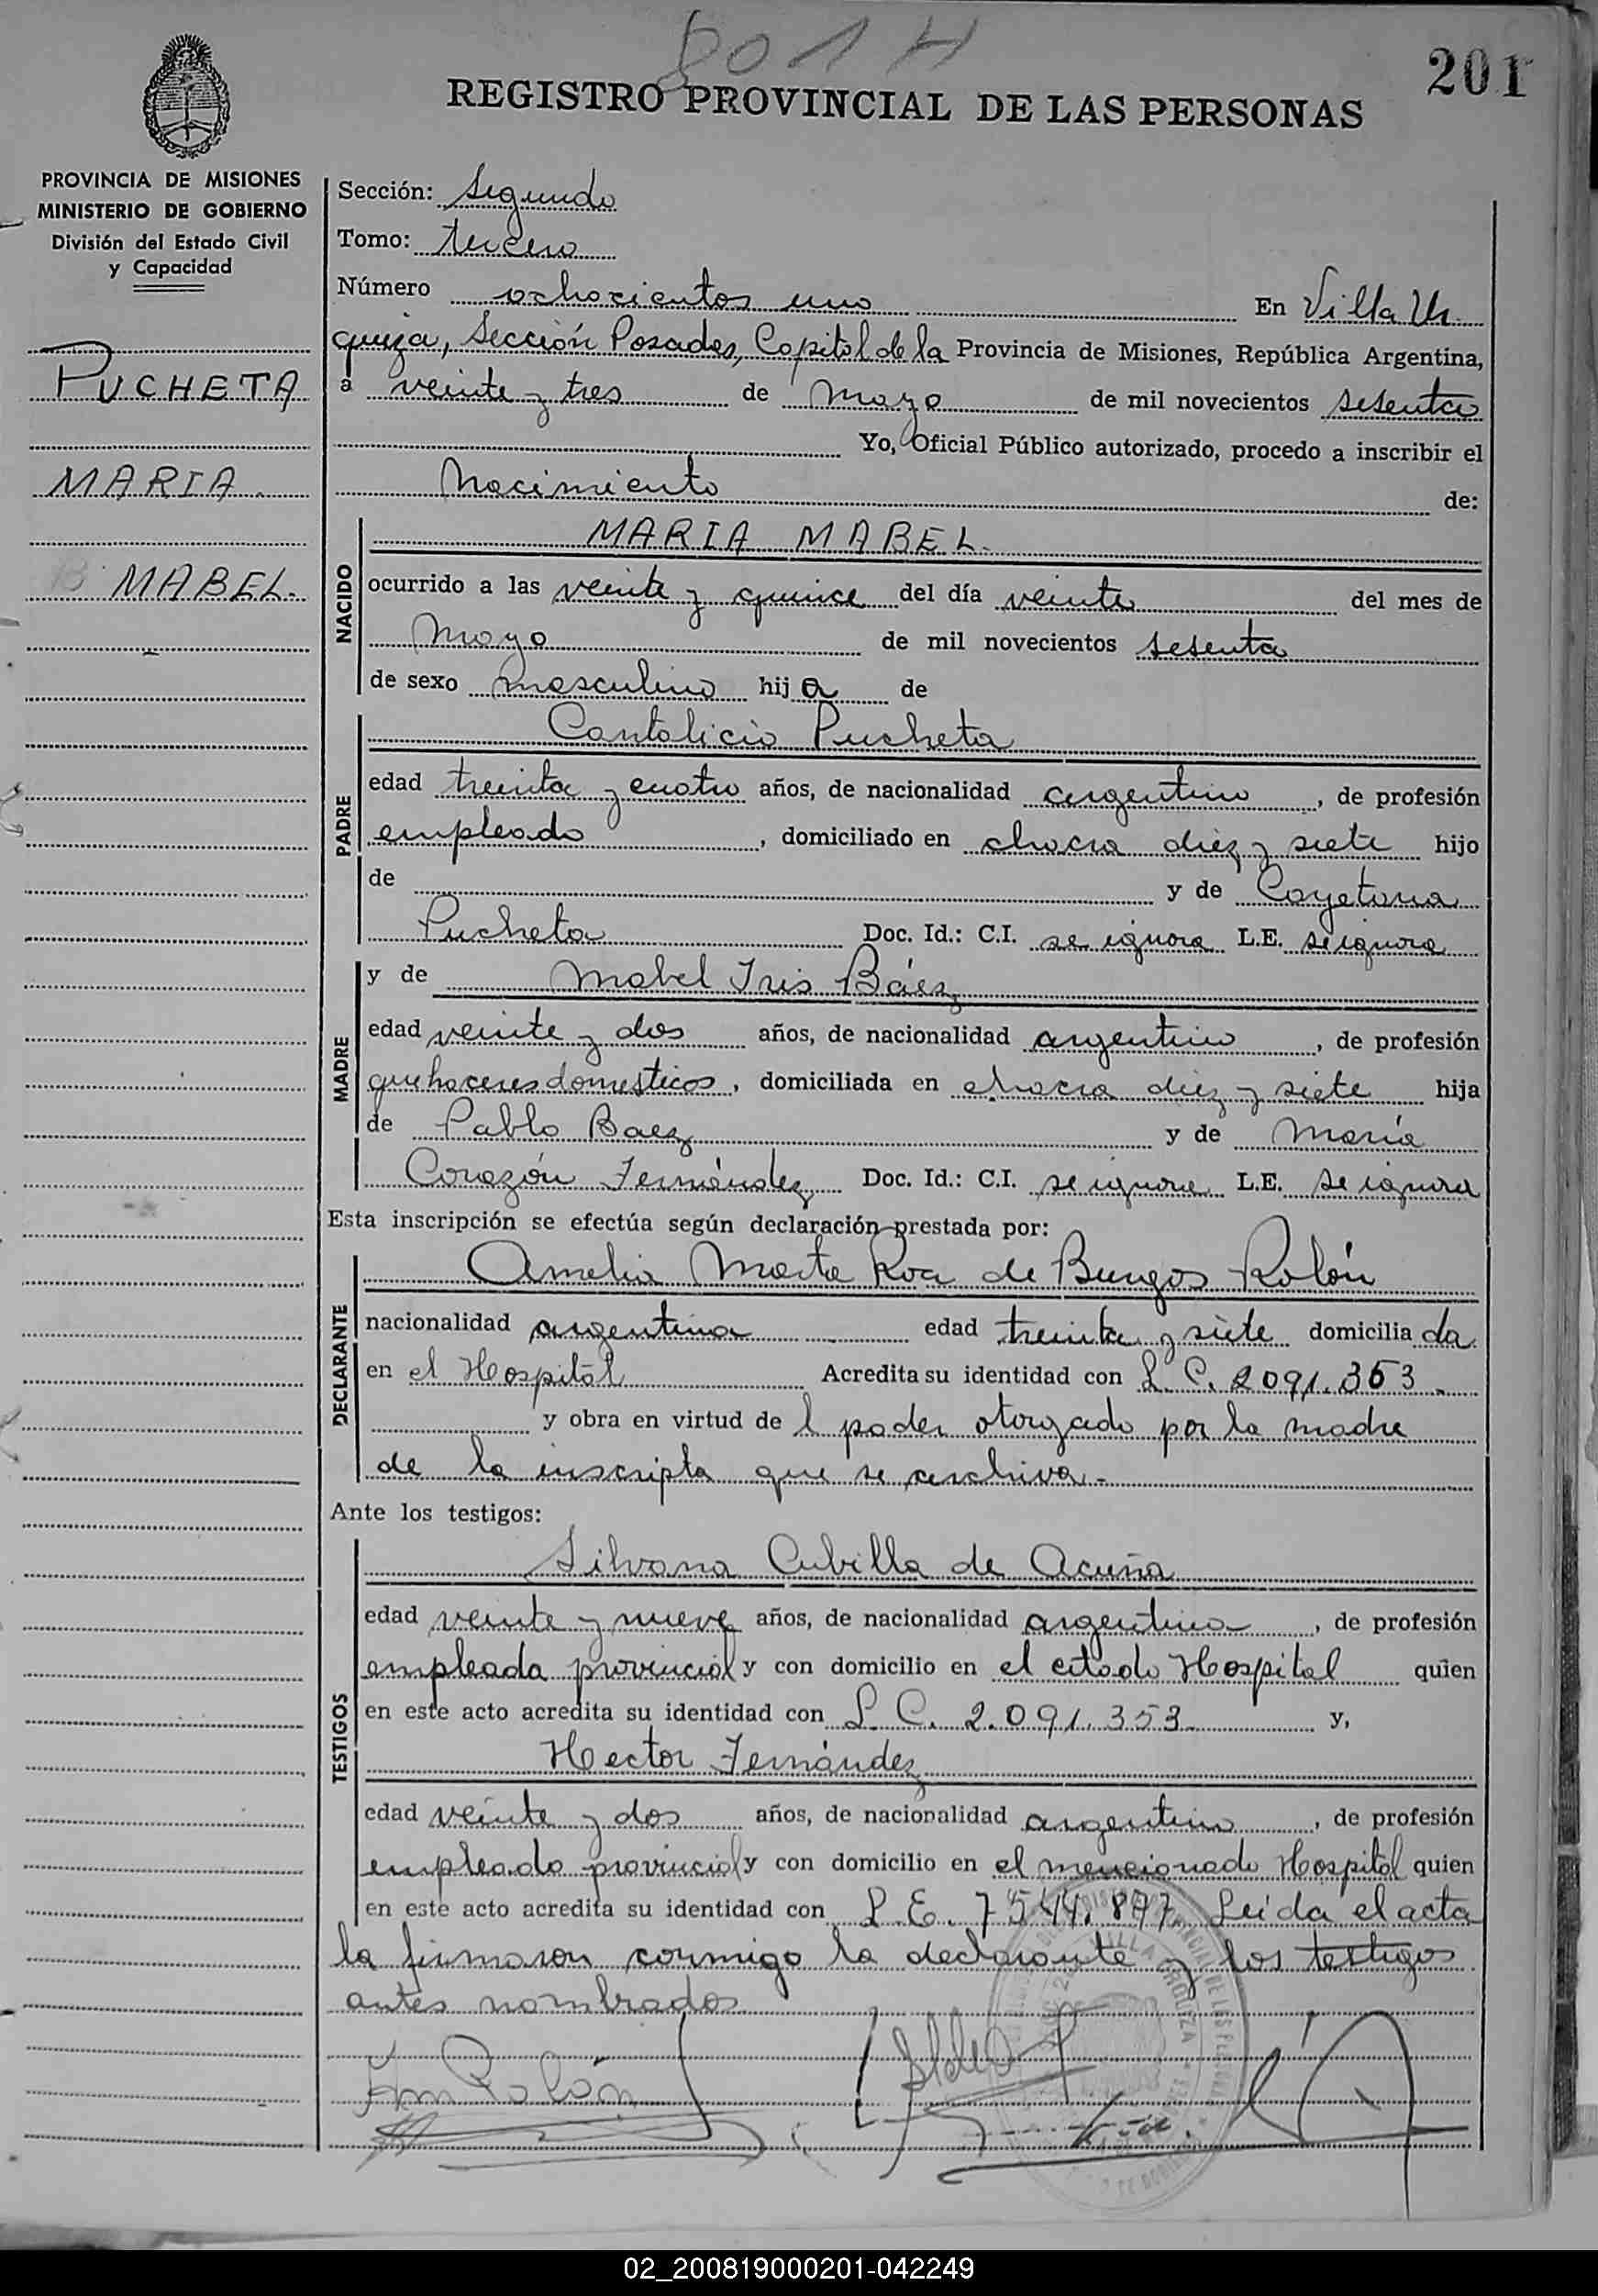 801 H
201
REGISTRO PROVINCIAL DE LAS PERSONAS
PROVINCIA DE MISIONES
MINISTERIO DE GOBIERNO
División del Estado Civil
y Capacidad
PUCHETA
MARIA
MABEL.
Sección: Segundo
Tomo: tercero
Número ochocientos uno En Villa Ur
quiza, Sección Posadas, Capital de la Provincia de Misiones, República Argentina,
a veinte y tres de mayo de mil novecientos sesenta
Yo, Oficial Público autorizado, procedo a inscribir el
Nacimiento de:
NACIDO
MARIA MABEL.
ocurrido a las veinte y quince del día veinte del mes de
mayo de mil novecientos sesenta
de sexo masculino hija de
PADRE
Cantalicio Pucheta
edad treinta y cuatro años, de nacionalidad argentino, de profesión
empleado, domiciliado en chacra diez y siete hijo
de y de Cayetana
Pucheta Doc. Id.: C.I. se ignora L.E. se ignora
MADRE
y de Mabel Iris Báez
edad veinte y dos años, de nacionalidad argentino, de profesión
quehaceres domesticos, domiciliada en chacra diez y siete hija
de Pablo Baez y de María
Corazón Fernández Doc. Id.: C.I. se ignora L.E. se ignora
Esta inscripción se efectúa según declaración prestada por:
DECLARANTE
Amelia Marta Roa de Burgos Rolón
nacionalidad argentina edad treinta y siete domiciliada
en el Hospital Acredita su identidad con L.C. 2091.353.
y obra en virtud del poder otorgado por la madre
de la inscripta que se archiva.-
Ante los testigos:
TESTIGOS
Silvana Cubilla de Acuña
edad veinte y nueve años, de nacionalidad argentina, de profesión
empleada provincial y con domicilio en el citado Hospital quien
en este acto acredita su identidad con L.C. 2.091.353. y,
Hector Fernández
edad veinte y dos años, de nacionalidad argentino, de profesión
empleado provincial y con domicilio en el mencionado Hospital quien
en este acto acredita su identidad con L.E. 7544.877. Leida el acta
la firmaron conmigo la declarante y los testigos
antes nombrados
02_200819000201-042249